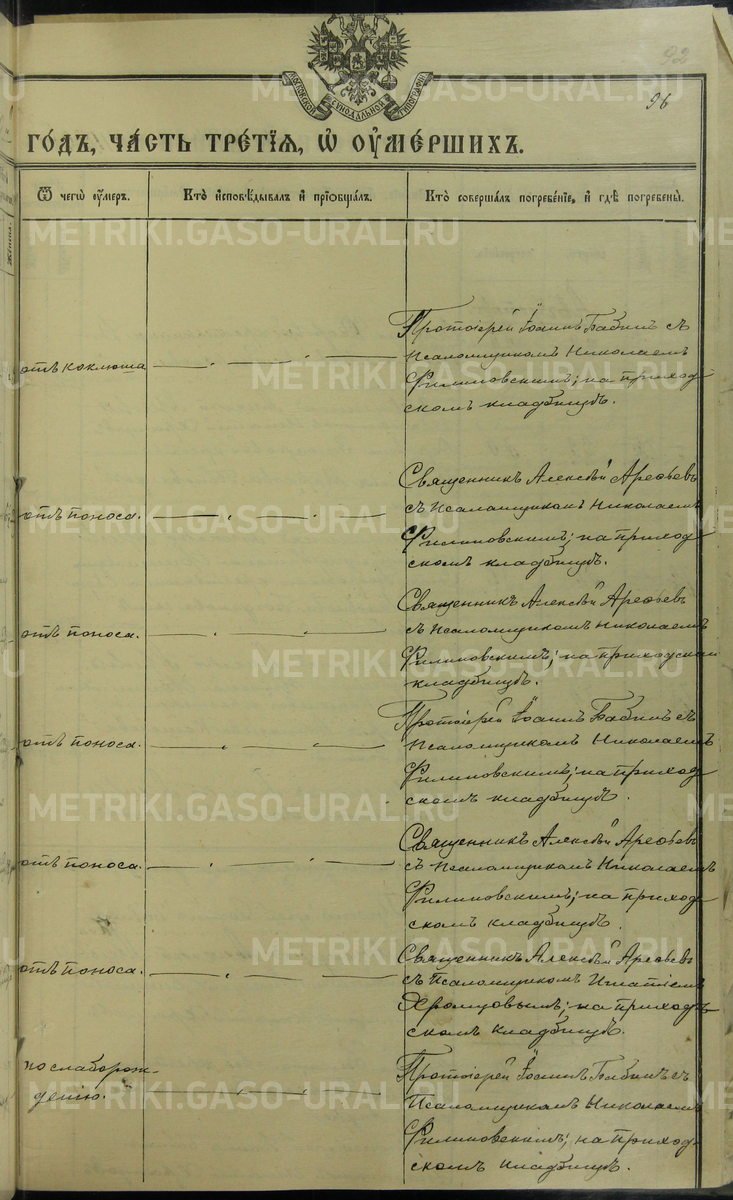 92
96
МОСКОВСКОЙ СѴНОДАЛЬНОЙ ТИПОГРАФІИ
ГО́ДЪ, ЧА́СТЬ ТРЕ́ТІЯ, Ѡ҆ ОУ҆МЕ́РШИХЪ.
Ѿ чегѡ̀ оу҆́меръ.
Кто̀ и҆сповѣ́дывалъ и҆ прїѡбща́лъ.
Кто̀ соверша́лъ погребе́нїе, и҆ гдѣ̀ погребены̀.
отъ коклюша
Протоіерей Іоаннъ Бабинъ съ
псаломщикомъ Николаемъ
Филиповскимъ; на приход
скомъ кладбищѣ.
отъ поноса.
Священникъ Алексѣй Арефьевъ
съ псаломщикомъ Николаемъ
Филиповскимъ; на приход
скомъ кладбищѣ.
отъ поноса.
Священникъ Алексѣй Арефьевъ
съ псаломщикомъ Николаемъ
Филиповскимъ; на приходском
кладбищѣ.
отъ поноса.
Протоіерей Іоаннъ Бабинъ съ
псаломщикомъ Николаемъ
Филиповскимъ; на приход
скомъ кладбищѣ.
отъ поноса.
Священникъ Алексѣй Арефьевъ
съ псаломщикомъ Николаемъ
Филиповскимъ; на приход
скомъ кладбищѣ.
отъ поноса.
Священникъ Алексѣй Арефьевъ
съ псаломщикомъ Игнатіемъ
Хромцовымъ; на приход
скомъ кладбищѣ.
по слаборож-
денію.
Протоіерей Іоаннъ Бабинъ съ
псаломщикомъ Николаемъ
Филиповскимъ; на приход-
скомъ кладбищѣ.
METRIKI.GASO-URAL.RU